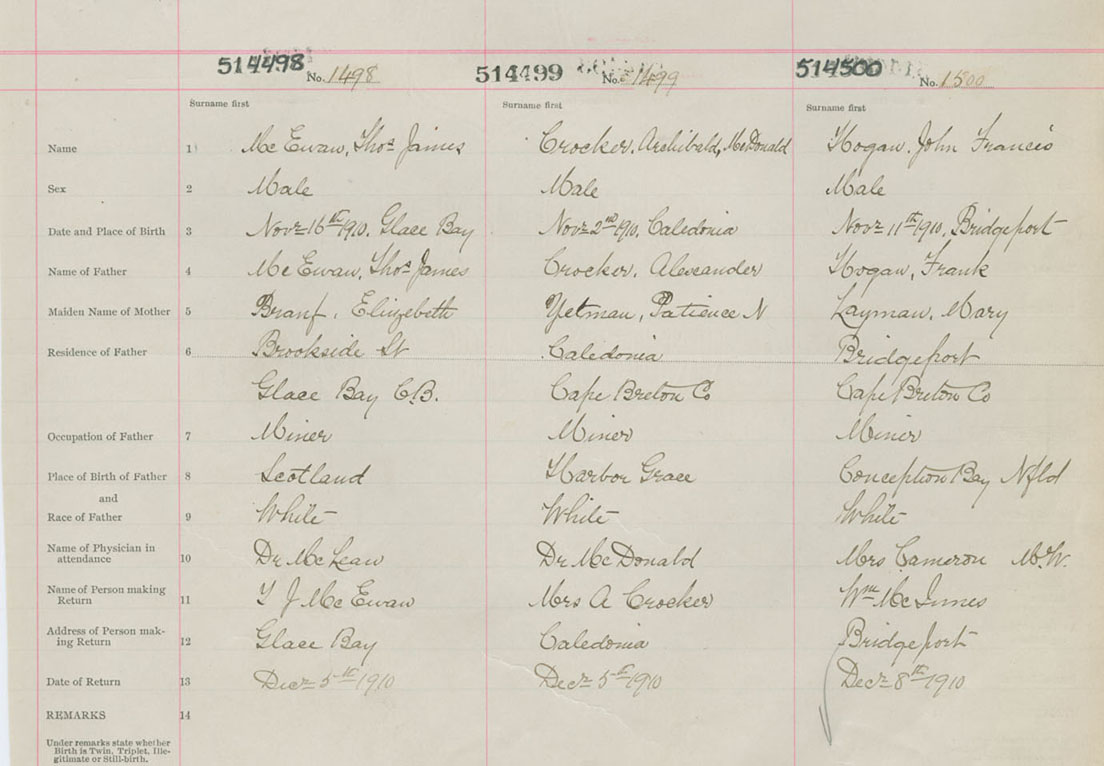 514498 No. 1498 514499 No. 1499 514500 No. 1500
Surname first Surname first Surname first
Name 1 McEwan, Thos James Crocker, Archibald, McDonald Hogan, John Francis
Sex 2 Male Male Male
Date and Place of Birth 3 Novr 16th 1910, Glace Bay Novr 2nd 1910, Caledonia Novr 11th 1910, Bridgeport
Name of Father 4 McEwan, Thos James Crocker, Alexander Hogan, Frank
Maiden Name of Mother 5 Elizabeth Yetman, Patience N Layman, Mary
Residence of Father 6 Brookside St Caledonia Bridgeport
Glace Bay C.B. Cape Breton Co Cape Breton Co
Occupation of Father 7 Miner Miner Miner
Place of Birth of Father 8 Scotland Harbor Grace Conception Bay Nfld
and
Race of Father 9 White White White
Name of Physician in
attendance 10 Dr McLean Dr McDonald Mrs Cameron M.W.
Name of Person making
Return 11 T J McEwan Mrs A Crocker Wm McInnes
Address of Person mak-
ing Return 12 Glace Bay Caledonia Bridgeport
Date of Return 13 Decr 5th 1910 Decr 5th 1910 Decr 8th 1910
REMARKS 14
Under remarks state whether
Birth is Twin, Triplet, Ille-
gitimate or Still-birth.